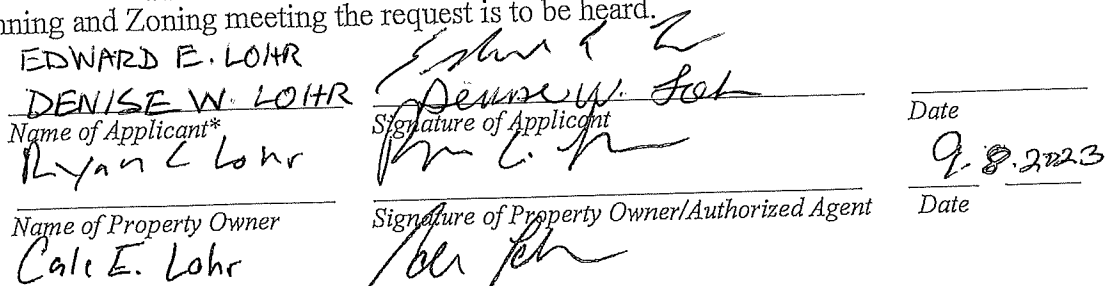 nning and Zoning meeting the request is to be heard.
EDWARD E. LOHR
DENISE W. LOHR Denise W. Loh
Name of Applicant* Signature of Applicant Date
Ryan C Lohr 9.8.2023
Name of Property Owner Signature of Property Owner/Authorized Agent Date
Cale E. Lohr